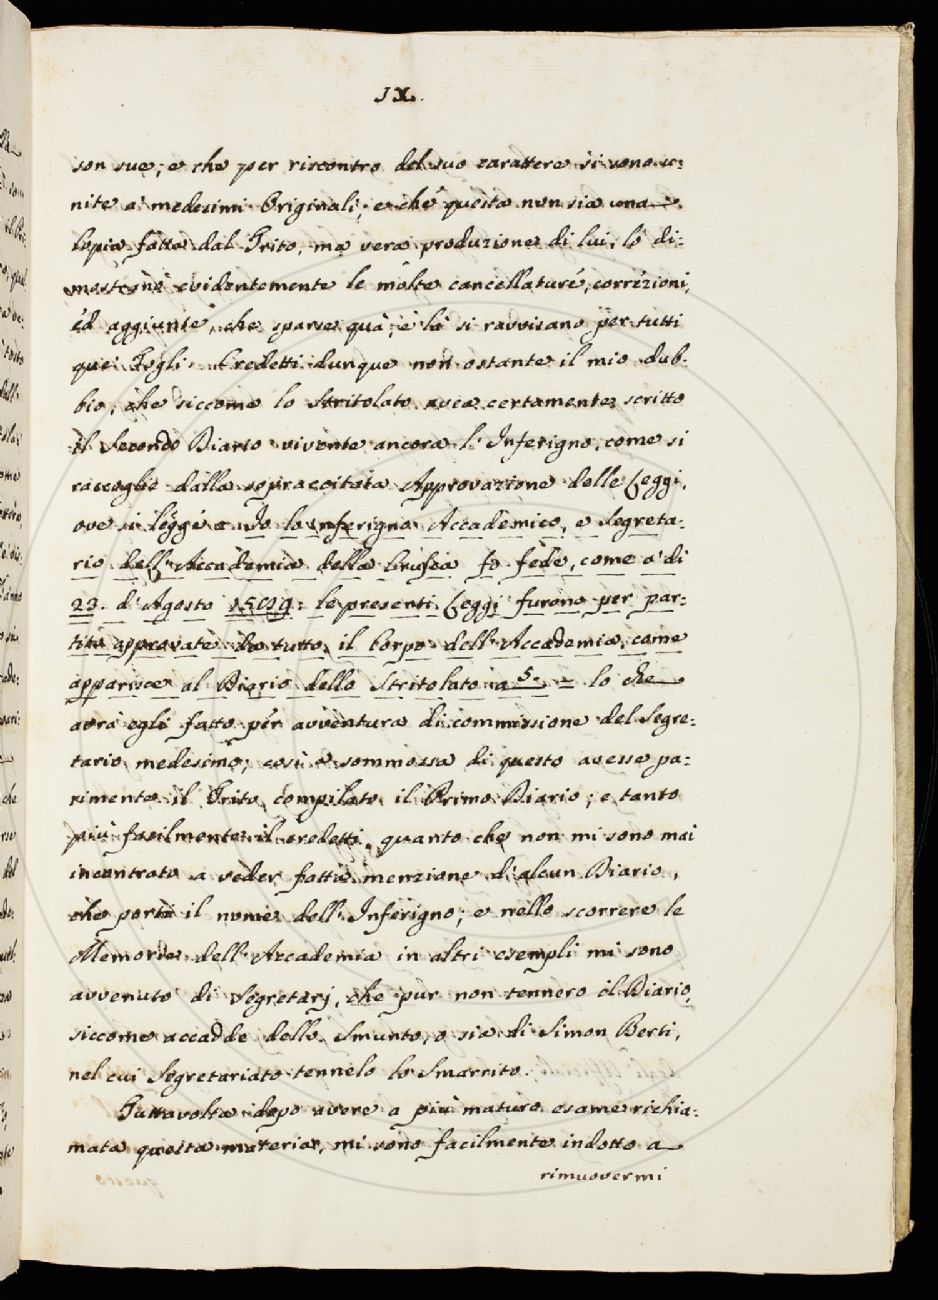 IX.
son sue; e che per riscontro del suo carattere si sono u:
nite a' medesimi Originali; e che questa non sia una
Copia fatta dal Trito, ma vera produzione di lui, lo di:
mostrano evidentemente le molte cancellature, correzioni,
ed aggiunte, che sparse quà, e là si ravvisano per tutti
quei Fogli. Credetti dunque non ostante il mio dub:
bio, che siccome lo Stritolato avea certamente scritto
il Secondo Diario vivente ancora l'Inferigno, come si
raccoglie dalla sopraccitata Approvazione delle Leggi,
ove si legge Io lo Inferigno Accademico, e Segreta:
rio dell'Accademia della Crusca fo fede, come a' di
23. d'Agosto 1589: le presenti Leggi furono per par:
tito approvate da tutto il Corpo dell'Accademia, come
apparisce al Diario dello Stritolato a 5. = lo che
avrà egli fatto per avventura di commissione del Segre:
tario medesimo; così a sommossa di questo avesse pa:
rimente il Trito compilato il Primo Diario; e tanto
più facilmente il credetti, quanto che non mi sono mai
incontrato a veder fatta menzione di alcun Diario,
che porti il nome dell'Inferigno; e nello scorrere le
Memorie dell'Accademia in altri esempli mi sono
avvenuto di Segretarj, che pur non tennero il Diario,
siccome accadde dello Smunto, o sia di Simon Berti,
nel cui Segretariato tennelo lo Smarrito.
Tuttavolta dopo avere a più maturo esame richia:
mata questa materia, mi sono facilmente indotto a
rimuovermi